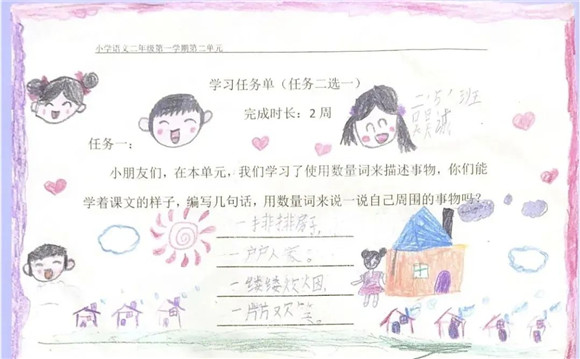 小学语文二年级第一学期第二单元
学习任务单（任务二选一）
完成时长：2 周
二（5）班
任务一：
小朋友们，在本单元，我们学习了使用数量词来描述事物，你们能
学着课文的样子，编写几句话，用数量词来说一说自己周围的事物吗？
一排排房子，
一户户人家。
一缕缕炊烟，
一片片欢笑。